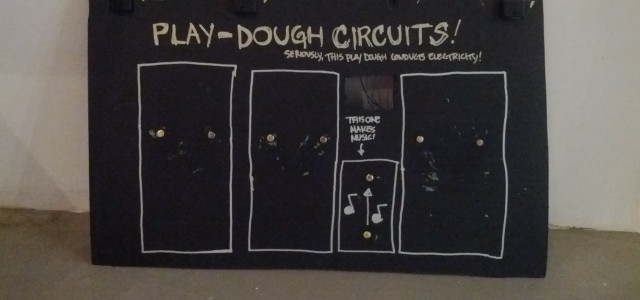 PLAY-DOUGH CIRCUITS!
SERIOUSLY, THIS PLAY DOUGH CONDUCTS ELECTRICITY!
THIS ONE
MAKES
MUSIC!